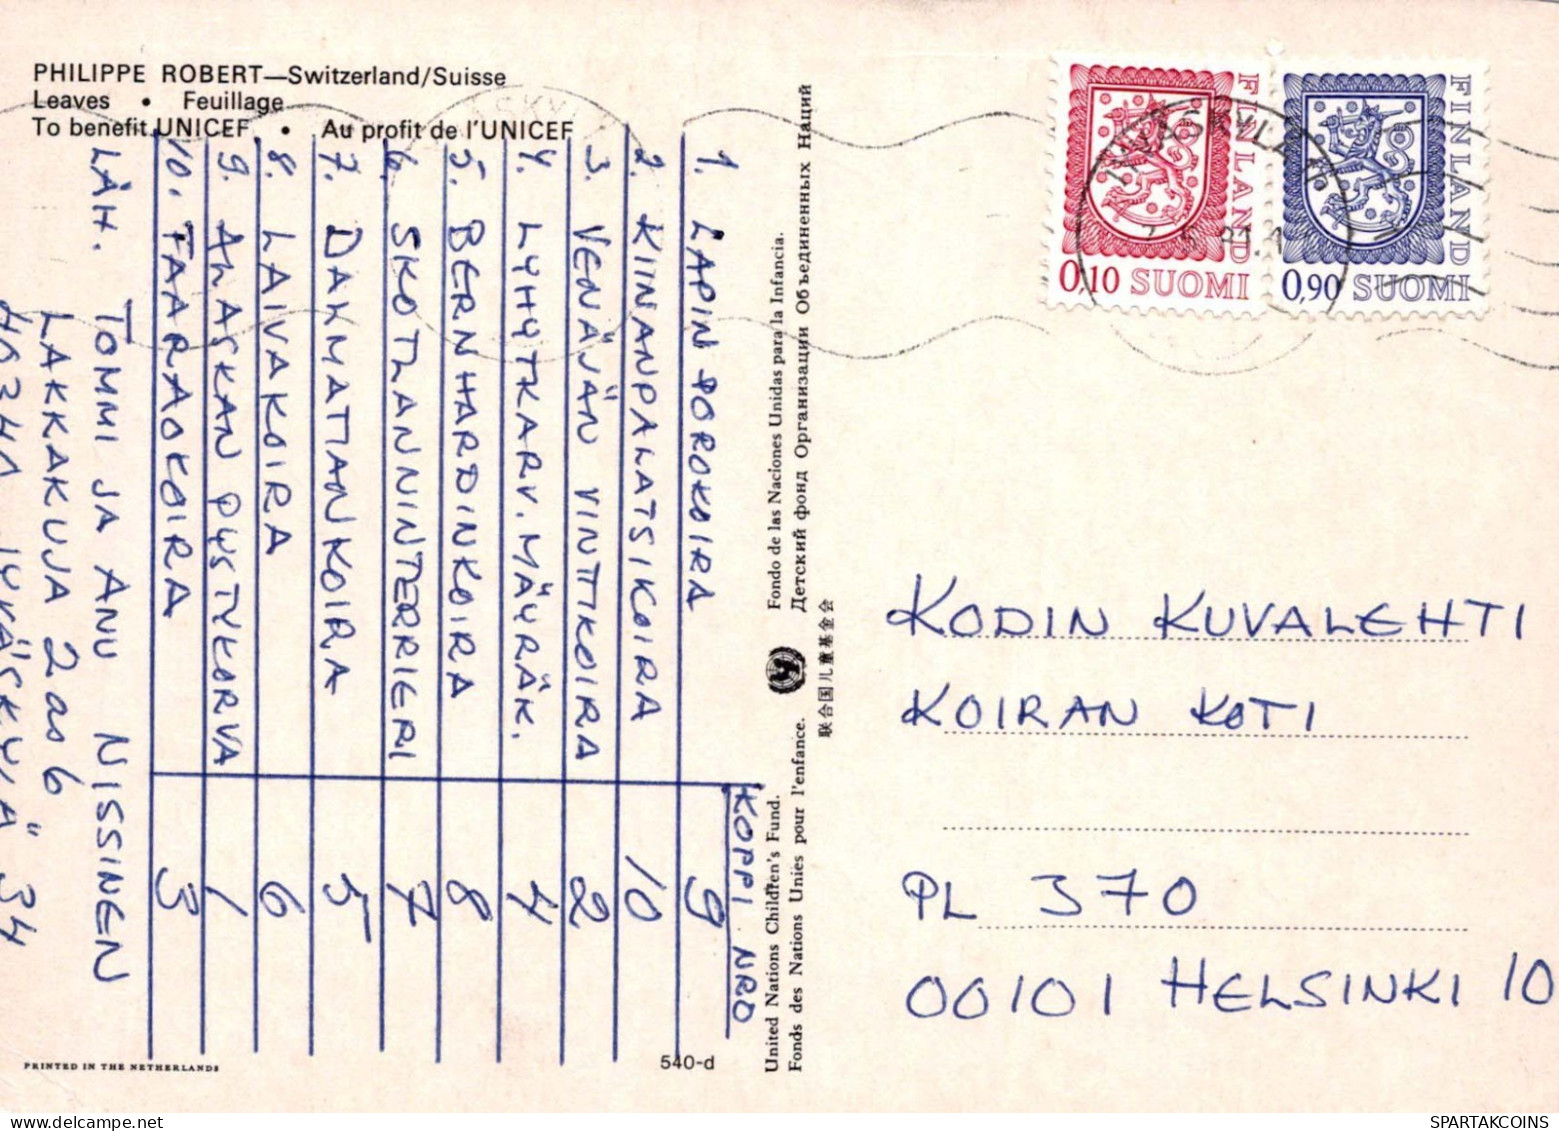 PHILIPPE ROBERT—Switzerland/Suisse
Leaves • Feuillage
To benefit UNICEF • Au profit de l'UNICEF
KOPPI NRO
1. LAPINPOROKOIRA 9
2. KIINANPALATSIKOIRA 10
3. VENÄJÄN VINTTIKOIRA 2
4. LYHYTKARV. MÄYRÄK. 4
5. BERNHARDINKOIRA 8
6. SKOTLANNINTERRIERI 7
7. DALMATIANKOIRA 5
8. LAIVAKOIRA 6
9. ALASKAN PYSTYKORVA 1
10. FAARAOKOIRA 3
LÄH. TOMMI JA ANU NISSINEN
LAKKAKUJA 2 as 6
JYVÄSKYLÄ 34
PRINTED IN THE NETHERLANDS
540-d
United Nations Children's Fund.
Fonds des Nations Unies pour l'enfance.
Fondo de las Naciones Unidas para la Infancia.
Детский фонд Организации Объединенных Наций
联合国儿童基金会
FINLAND
0,10 SUOMI
FINLAND
0,90 SUOMI
KODIN KUVALEHTI
KOIRAN KOTI
PL 370
00101 HELSINKI 10
SPARTAKCOINS